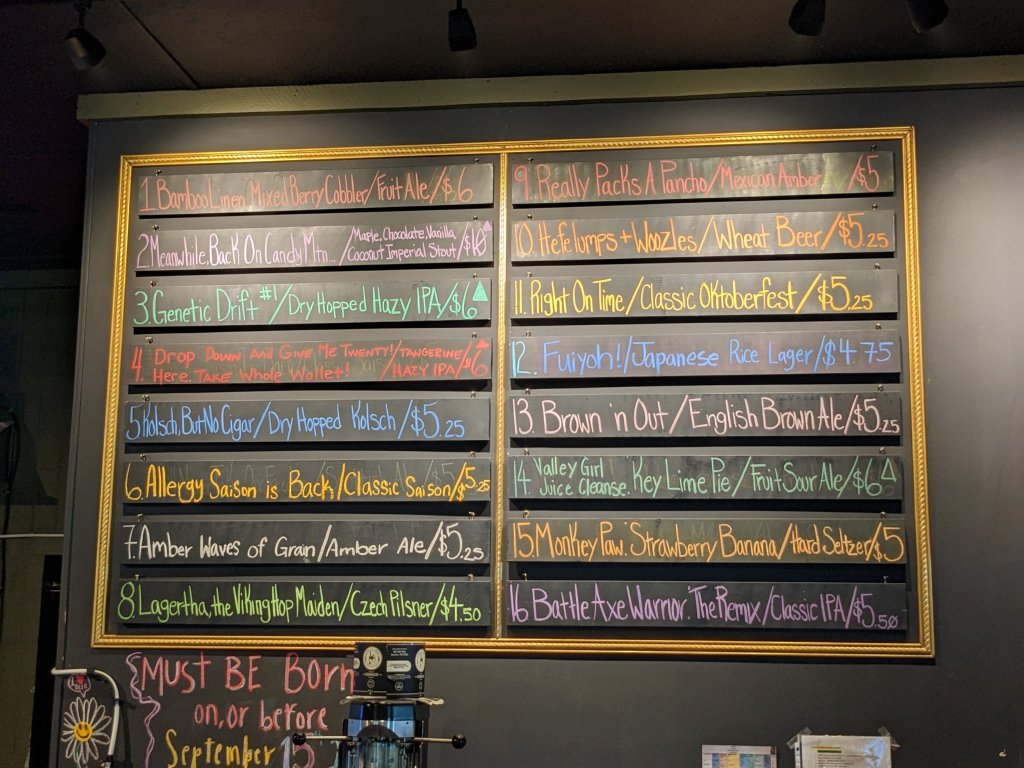 1. Bamboo Linen. Mixed Berry Cobbler/Fruit Ale/$6
2. Meanwhile, Back On Candy Mtn... /Maple, Chocolate, Vanilla,
Coconut Imperial Stout/$10
3. Genetic Drift #1/Dry Hopped Hazy IPA/$6
4. Drop Down And Give Me Twenty!/Tangerine
Here. Take Whole Wallet! /Hazy IPA/$6
5. Kolsch, But No Cigar/Dry Hopped Kolsch/$5.25
6. Allergy Saison is Back/Classic Saison/$5.25
7. Amber Waves of Grain/Amber Ale/$5.25
8. Lagertha, the Viking Hop Maiden/Czech Pilsner/$4.50
9. Really Packs A Pancho/Mexican Amber /$5
10. Hefelumps + Woozles/Wheat Beer/$5.25
11. Right On Time/Classic Oktoberfest/$5.25
12. Fuiyoh!/Japanese Rice Lager/$4.75
13. Brown 'n Out/English Brown Ale/$5.25
14. Valley Girl
Juice Cleanse. Key Lime Pie/Fruit Sour Ale/$6
15. Monkey Paw. Strawberry Banana/Hard Seltzer/$5
16. Battle Axe Warrior. The Remix/Classic IPA/$5.50
Must BE Born
on, or before
September